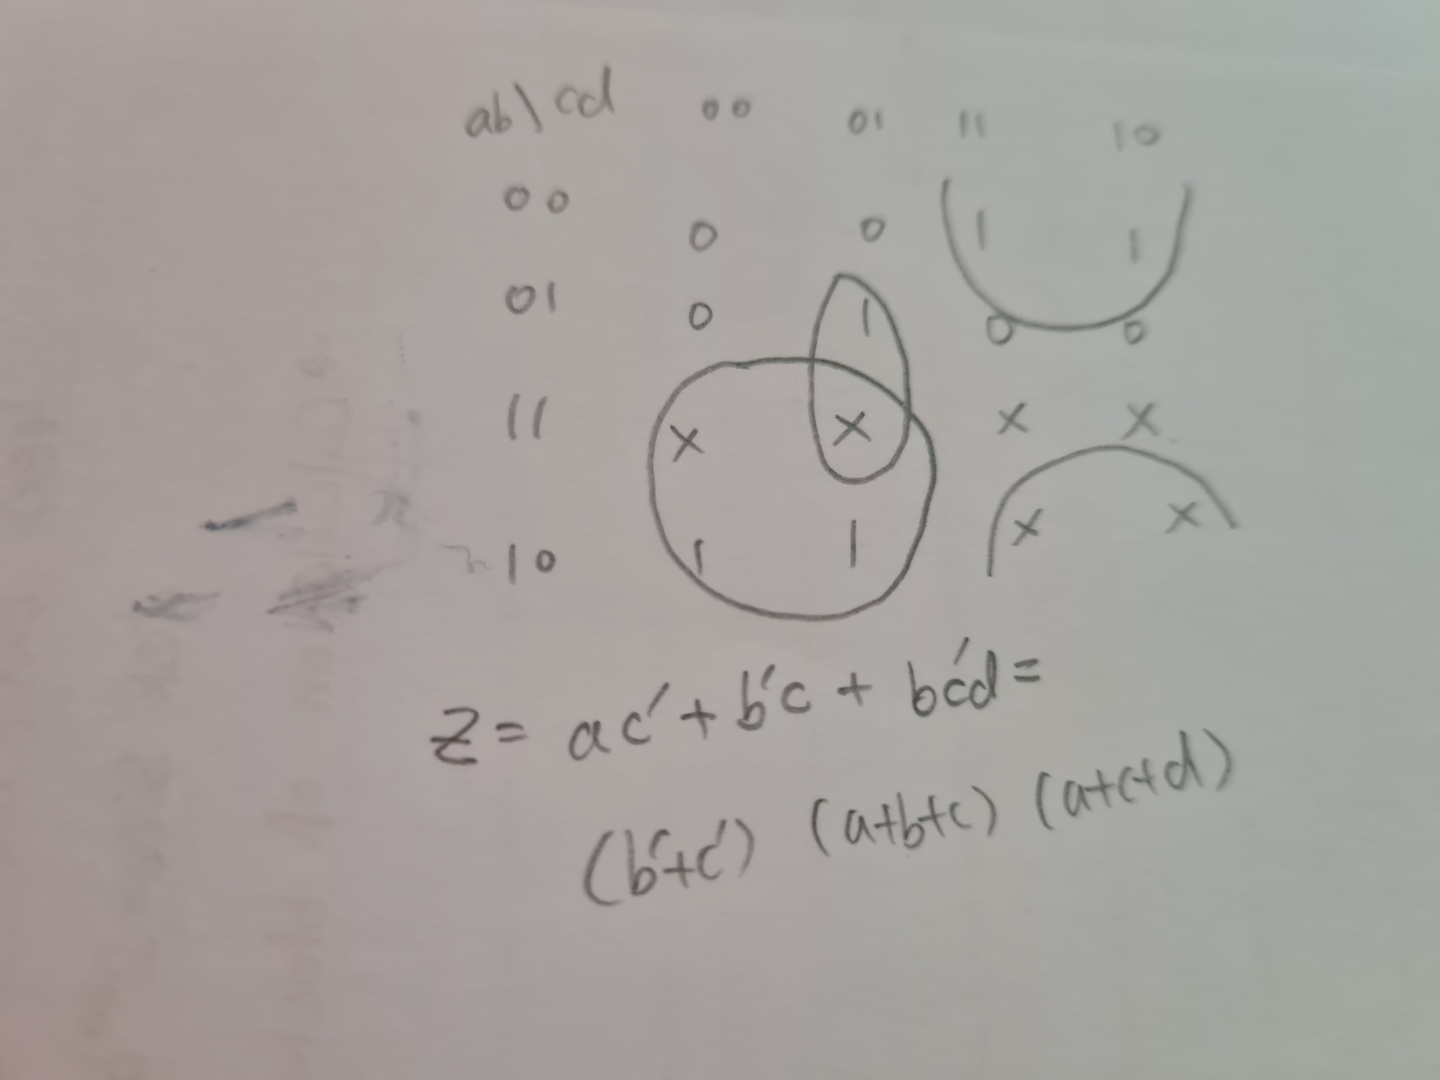 ab\cd 00 01 11 10
00 0 0 1 1
01 0 1 0 0
11 x x x x
10 1 1 x x
z = ac' + b'c + bc'd =
(b'+c') (a+b+c) (a+c+d)